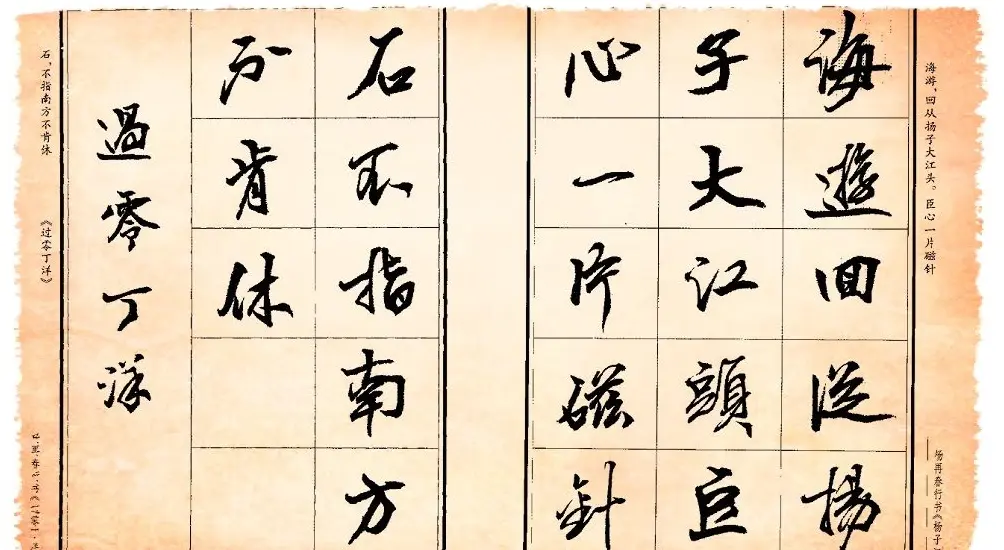 海游，回从扬子大江头。臣心一片磁针
杨再春行书《杨子
海遊回從揚
子大江頭臣
心一片磁針
石不指南方
不肯休
過零丁洋
石，不指南方不肯休
《过零丁洋》